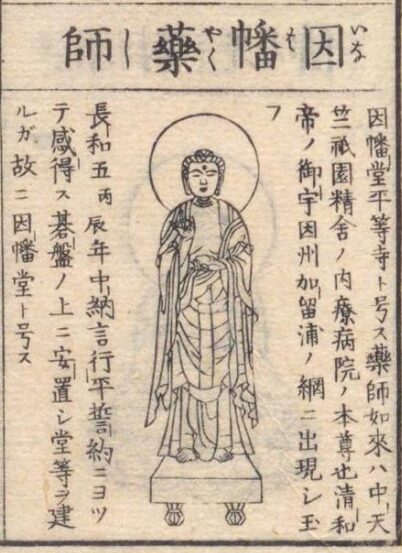 因幡藥師
いなばやくし
因幡堂平等寺ト号ス藥師如來ハ中天
竺祇園精舎ノ内療病院ノ本尊也清和
帝ノ御宇因州加留浦ノ網ニ出現シ玉
フ
長和五丙辰年中納言行平誓約ニヨツ
テ感得ス碁盤ノ上ニ安置シ堂等ヲ建
ルガ故ニ因幡堂ト号ス